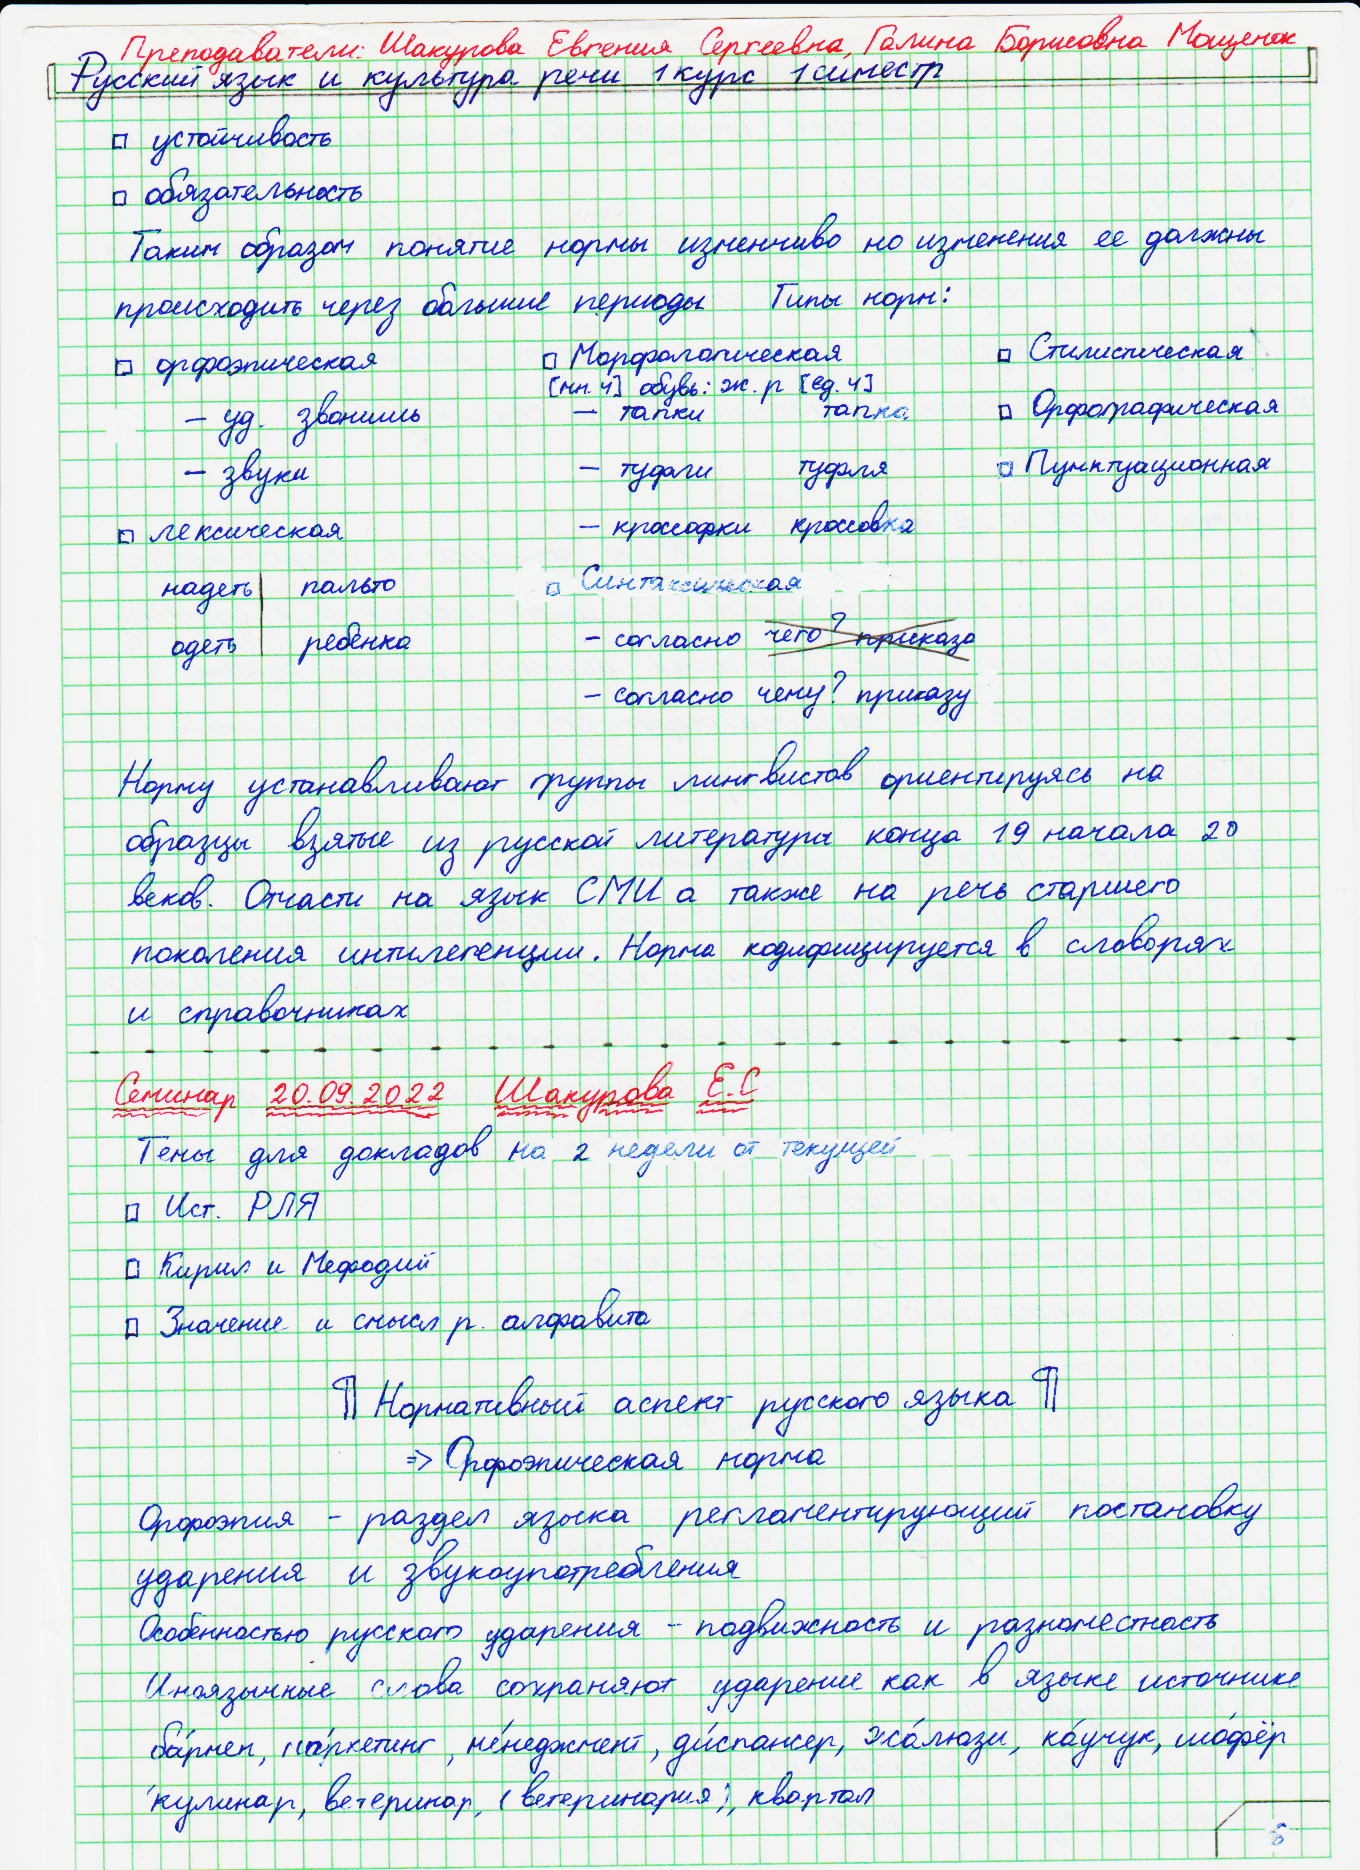 Преподаватели: Шакурова Евгения Сергеевна, Галина Борисовна Мощенок
Русский язык и культура речи 1 курс 1 симестр
□ устойчивость
□ обязательность
Таким образом понятие нормы изменчиво но изменения ее должны
происходить через большие периоды Типы норм:
□ орфоэпическая □ Морфологическая □ Стилистическая
[мн.ч] обувь: ж.р [ед.ч]
– уд. звонишь – тапки тапка □ Орфографическая
– звуки – туфли туфля □ Пунктуационная
□ лексическая – кроссофки кроссовка
надеть | пальто □ Синтаксическая
одеть | ребенка – согласно чего? приказа
– согласно чему? приказу
Норму устанавливают группы лингвистов ориентируясь на
образцы взятые из русской литературы конца 19 начала 20
веков. Отчасти на язык СМИ а также на речь старшего
поколения интилегенции. Норма кодифицируется в словорях
и справочниках
Семинар 20.09.2022 Шакурова Е.С
Темы для докладов на 2 недели от текущей
□ Ист. РЛЯ
□ Кирил и Мефодий
□ Значение и смысл р. алфавита
¶ Нормативный аспект русского языка ¶
=> Орфоэпическая норма
Орфоэпия – раздел языка регламентирующий постановку
ударения и звукоупотребления
Особенностью русского ударения – подвижность и разноместность
Иноязычные слова сохраняют ударение как в языке источнике
ба́рмен, ма́ркетинг, ме́неджмент, ди́спансер, жа́люзи, ка́учук, шо́фёр
кулинар, ветеринар, (ветеринария), квартал
6